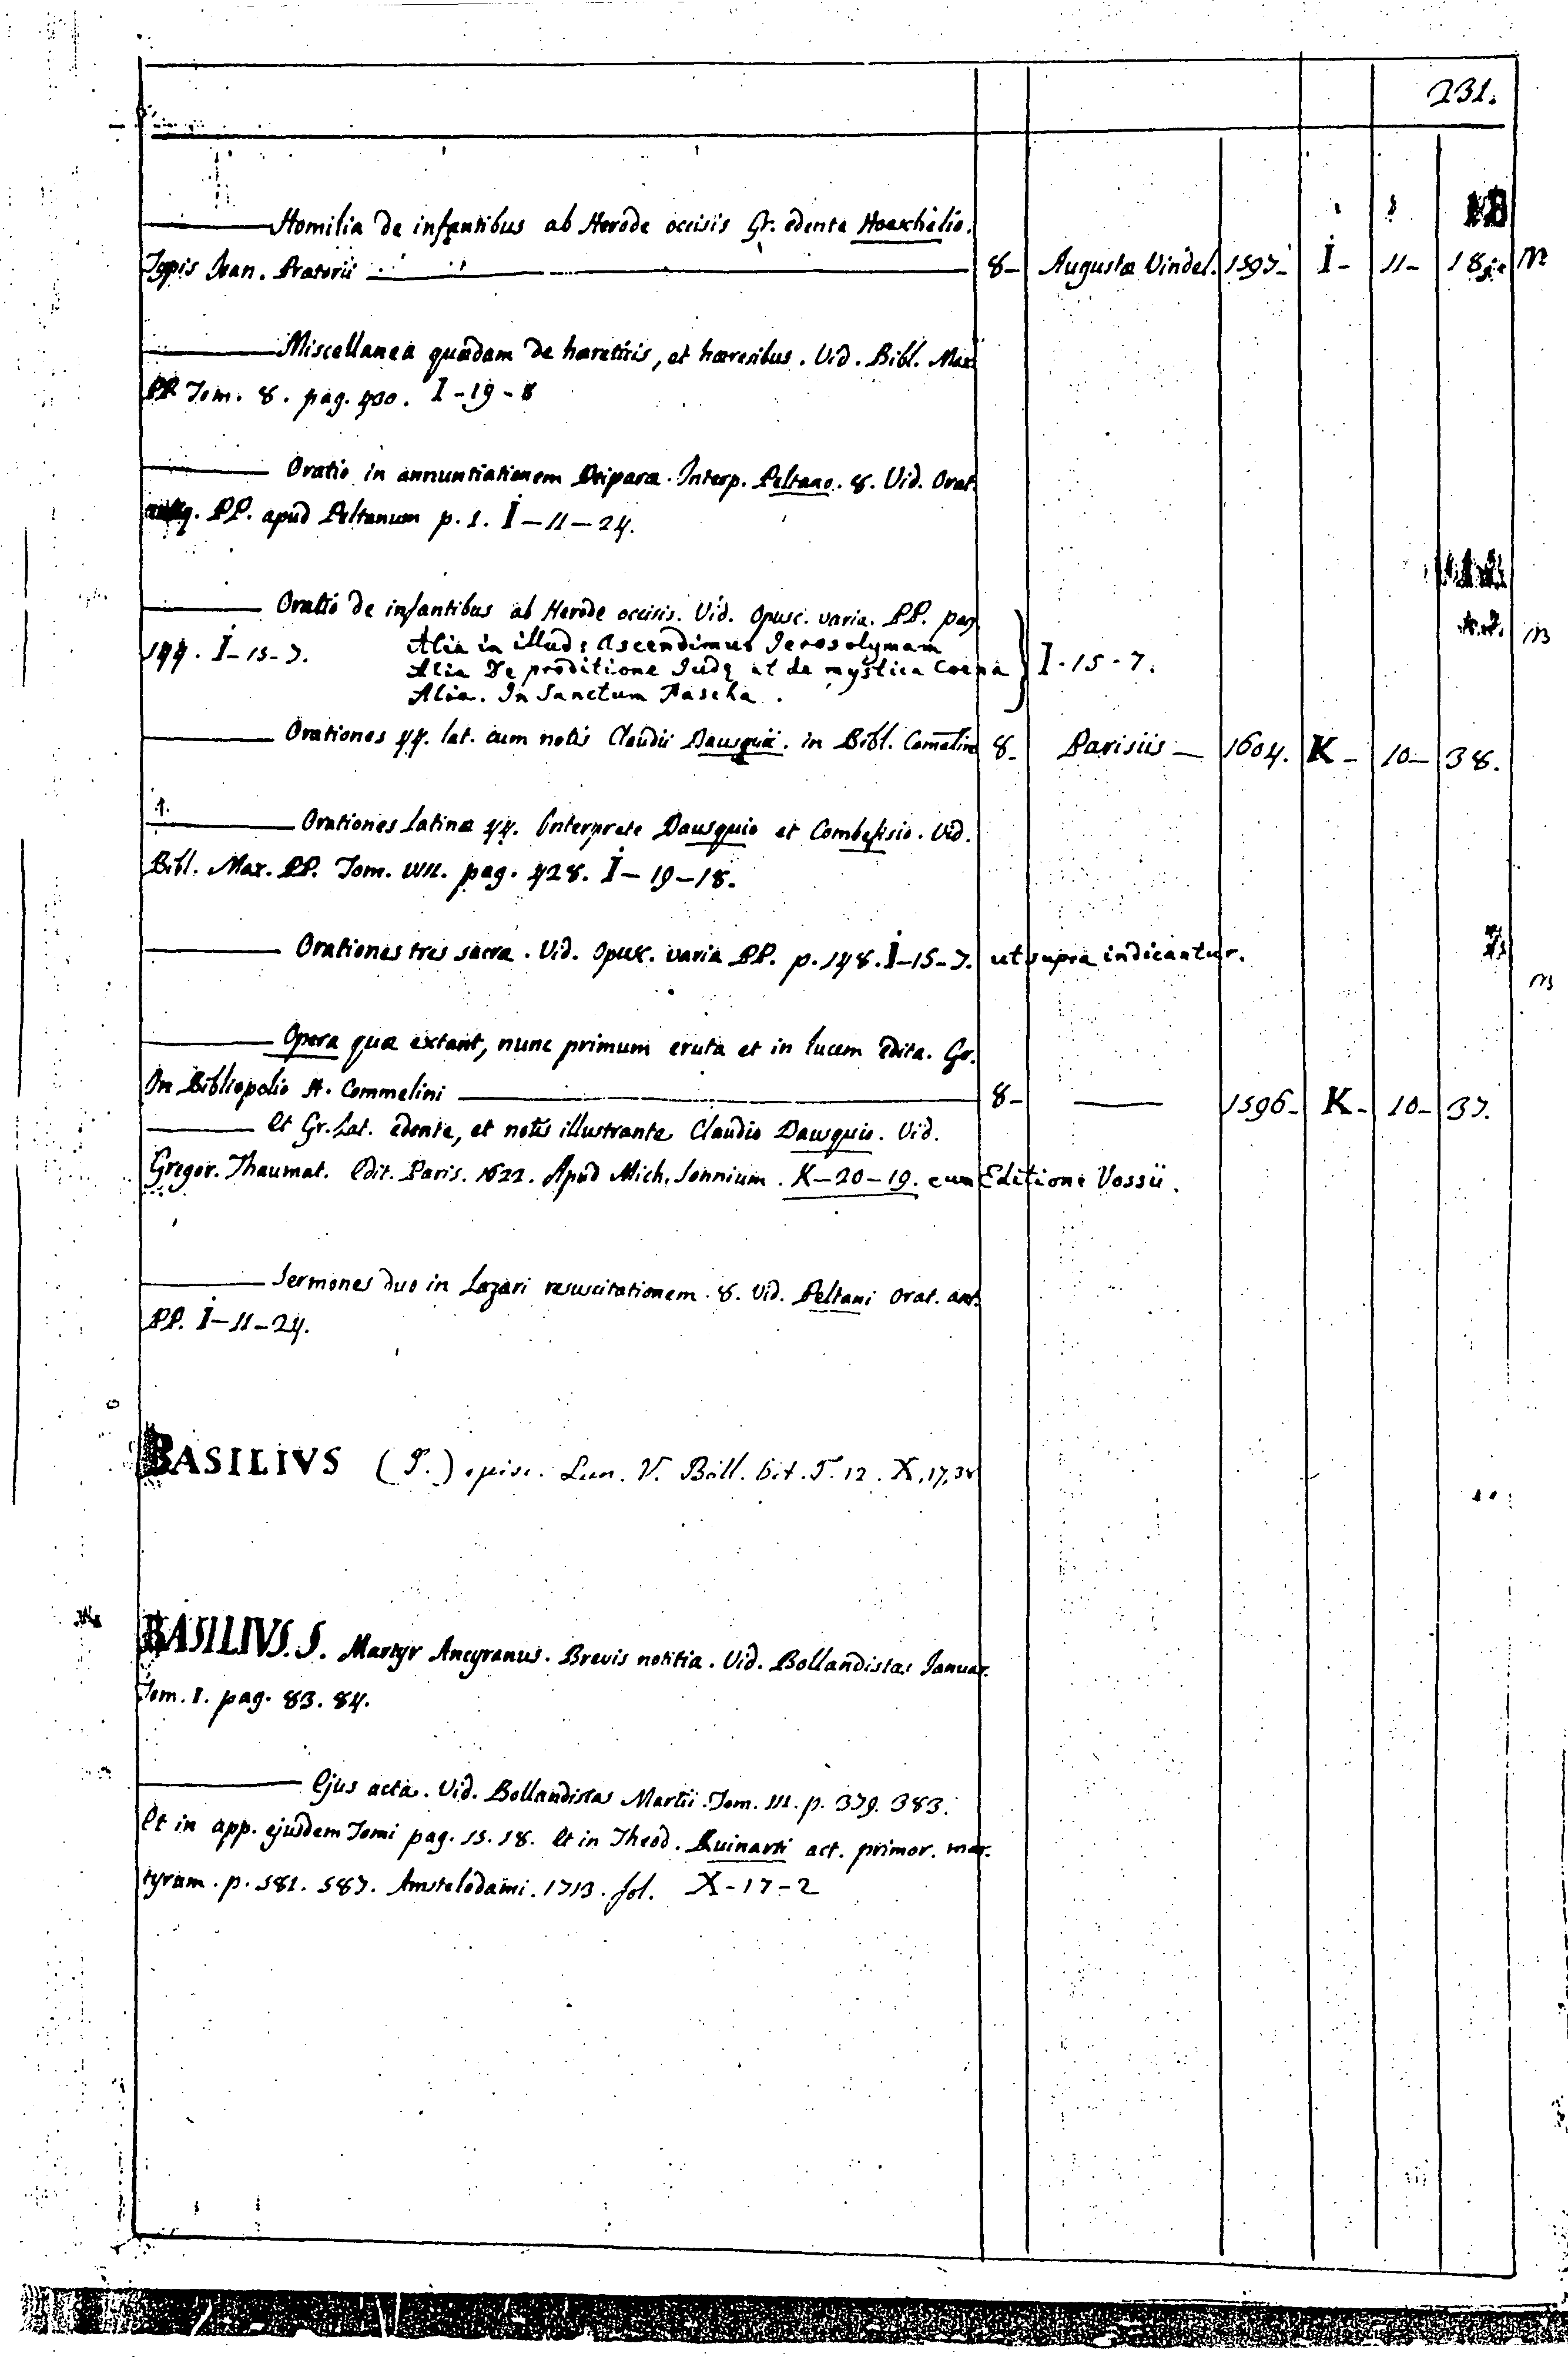 231.
——— Homilia de infantibus ab Herode occisis Gr. edente Hoeschelio.
Typis Ioan. Pratorii ——— 8- Augustæ Vindel. 1597- I- 11- 18
——— Miscellanea quædam de hæreticis, et hæresibus. Vid. Bibl. Max.
PP. Tom. 8. pag. 430. I-19-8
——— Oratio in annuntiationem Deiparæ. Interp. Peltano. 8. Vid. Orat.
PP. apud Peltanum p. 1. I-11-24.
——— Oratio de infantibus ab Herode occisis. Vid. Opusc. varia. PP. pag.
144. I-15-7. Alia in illud: Ascendimus Ierosolymam
Alia De proditione Iudę et de mystica Coena } I-15-7.
Alia. In Sanctum Pascha.
——— Orationes 44. lat. cum notis Claudii Dausquii. in Bibl. Comelin 8- Parisiis — 1604. K- 10- 38.
——— Orationes Latinæ 44. Interprete Dausquio et Combefisio. Vid.
Bibl. Max. PP. Tom. VIII. pag. 428. I-19-18.
——— Orationes tres sacræ. Vid. Opusc. varia PP. p. 148. I-15-7. ut supra indicantur.
——— Opera quæ extant, nunc primum eruta et in lucem edita. Gr.
In Bibliopolio H. Commelini ——— 8- —— 1596- K- 10- 37.
——— Et Gr. Lat. edente, et notis illustrante Claudio Dausquio. Vid.
Gregor. Thaumat. Edit. Paris. 1622. Apud Mich. Sonnium. K-20-19. cum Editione Vossii.
——— Sermones duo in Lazari resuscitationem. 8. Vid. Peltani Orat. ant.
PP. I-11-24.
BASILIVS (P.) episc. Lun. V. Boll. Oct. T. 12. X, 17, 38
BASILIVS. S. Martyr Ancyranus. Brevis notitia. Vid. Bollandistas Ianuar.
Tom. I. pag. 83. 84.
——— Ejus acta. Vid. Bollandistas Martii. Tom. III. p. 379. 383.
Et in app. ejusdem Tomi pag. 15. 18. Et in Theod. Ruinarti act. primor. mar-
tyrum. p. 581. 587. Amstelodami. 1713. fol. X-17-2